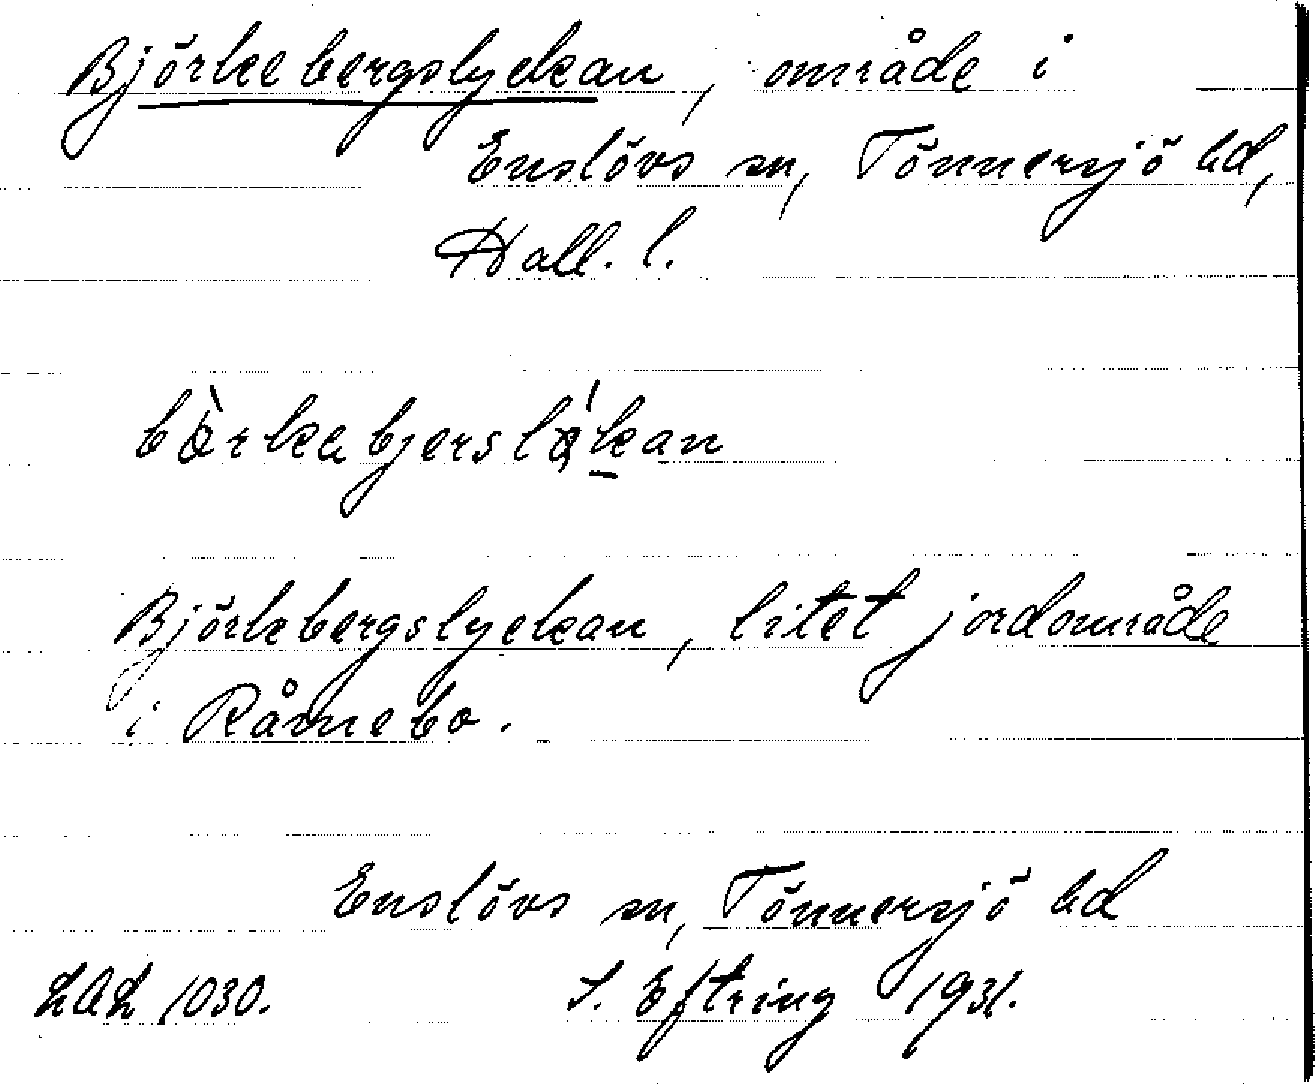 Björkebergslyckan, område i
Enslövs sn, Tönnersjö hd,
Hall. l.
Björkebergslyckan, litet jordområde
i Råmebo.
Enslövs sn, Tönnersjö hd
LAL 1030. S. Eftring 1931.